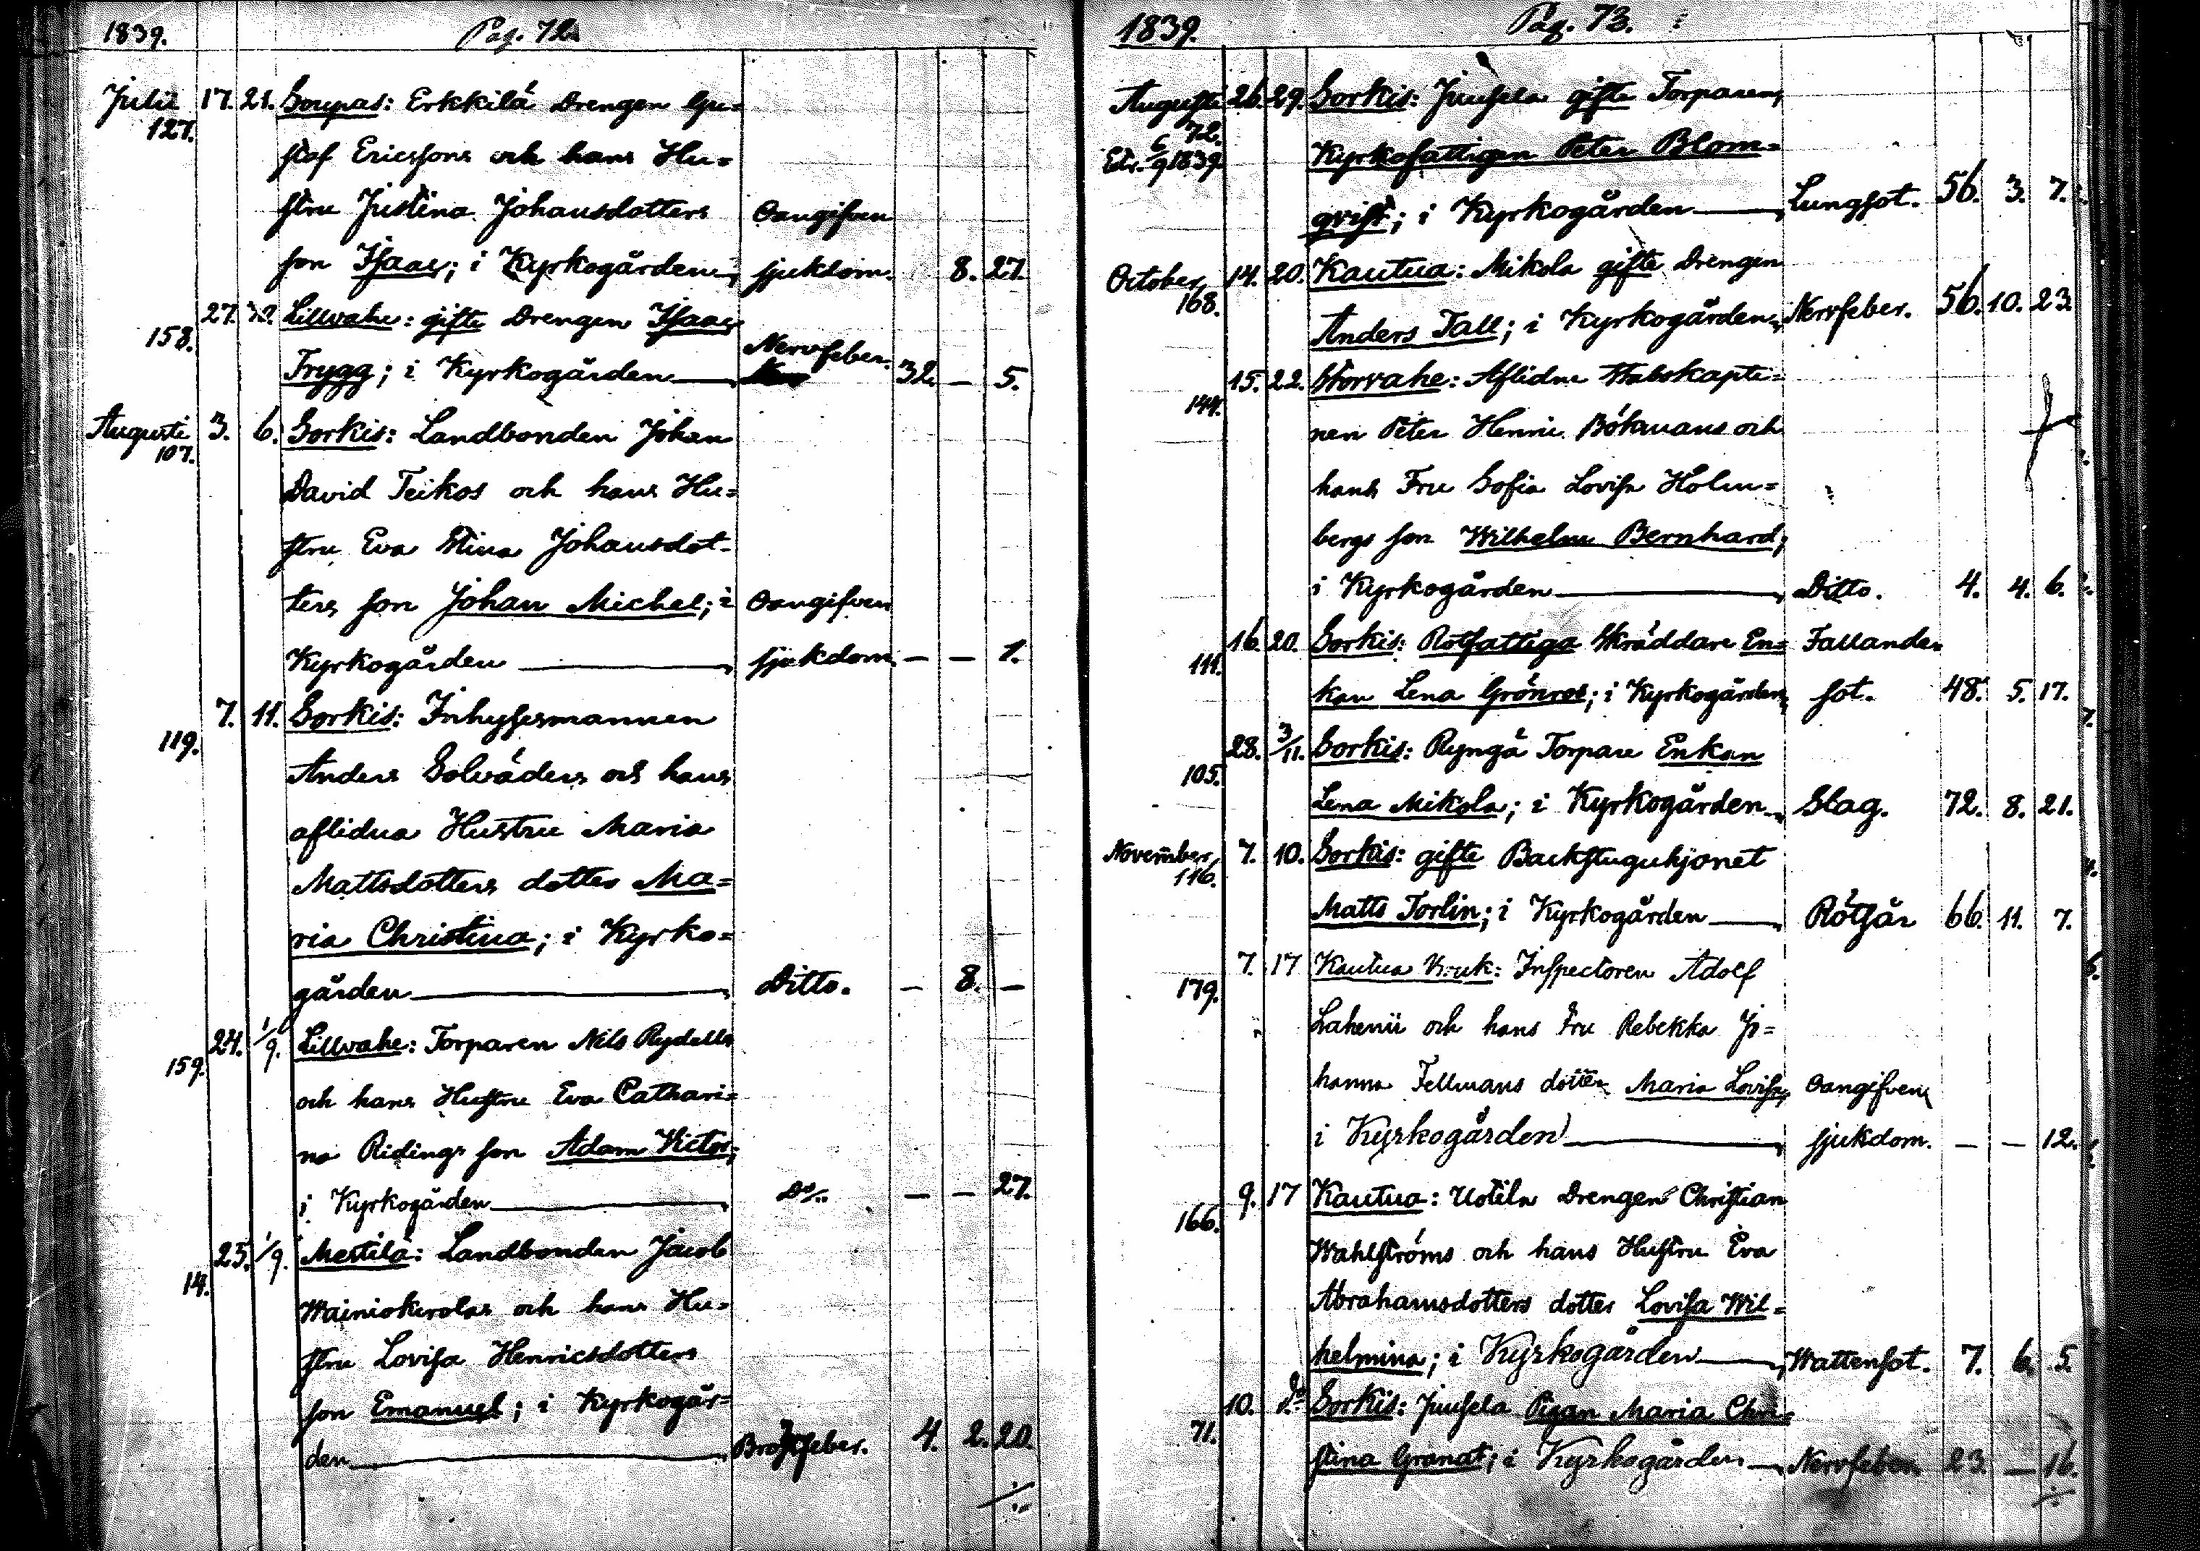 1839. Pag. 72.
Julii 17. 21. Soupas: Erkkilä Drengen Gu=
127.
staf Ericssons och hans Hu=
stru Justina Johansdotters Oangifven
son Isaac; i Kyrkogården, sjukdom. 8. 27.
27. Lillvahe: gifte Drengen Isaac
158. Nervfeber.
Trygg; i Kyrkogården 32. — 5.
Augusti 3. 6. Sorkis: Landbonden Johan
107.
David Teikos och hans Hu=
stru Eva Stina Johansdot=
ters son Johan Michel; i Oangifven
Kyrkogården sjukdom — — 1.
7. 11. Sorkis: Inhysesmannen
119.
Anders Solväders och hans
aflidna Hustru Maria
Mattsdotters dotter Ma=
ria Christina; i Kyrko=
gården Ditto. — 8. —
24. 1/9. Lillvahe: Torparen Nils Rydells
159.
och hans Hustru Eva Cathari=
na Ridings son Adam Victor;
i Kyrkogården Do. — — 27.
25. 1/9. Mestilä: Landbonden Jacob
14.
Wäiniokerolas och hans Hu=
stru Lovisa Henricsdotters
son Emanuel; i Kyrkogår=
den Bröstfeber. 4. 2. 20.
1839. Pag. 73.
Augusti 26. 29. Sorkis: Juusela gifte Torparen,
72.
6/9 1839 Kyrkofattigen Peter Blom=
qvist; i Kyrkogården Lungsot. 56. 3. 7.
October 14. 20. Kautua: Mikola gifte Drengen
168.
Anders Tall; i Kyrkogården, Nervfeber. 56. 10. 23.
15. 22. Storvahe: Aflidne Stabskapte=
144.
nen Peter Henric Bökmans och
hans Fru Sofia Lovisa Holm=
bergs son Wilhelm Bernhard;
i Kyrkogården Ditto. 4. 4. 6.
16. 20. Sorkis: Rotfattiga Skräddare En= Fallande
111.
kan Lena Grönros; i Kyrkogården, sot. 48. 5. 17.
28. 3/11. Sorkis: Ryngä Torpare Enkan
105.
Lena Mikola; i Kyrkogården Slag. 72. 8. 21.
November 7. 10. Sorkis: gifte Backstuguhjonet
116.
Matts Torlin; i Kyrkogården Rötsår 66. 11. 7.
7. 17 Kautua Bruk: Inspectoren Adolf
179.
Lahenii och hans Fru Rebekka Jo=
hanna Fellmans dotter Maria Lovisa, Oangifven
i Kyrkogården sjukdom. — — 12.
9. 17 Kautua: Uotila Drengen Christian
166.
Wahlströms och hans Hustru Eva
Abrahamsdotters dotter Lovisa Wil=
helmina; i Kyrkogården Wattensot. 7. 6. 5.
10. Do Sorkis: Juusela Pigan Maria Chri=
71.
stina Granat; i Kyrkogården Nervfeber 23. — 16.